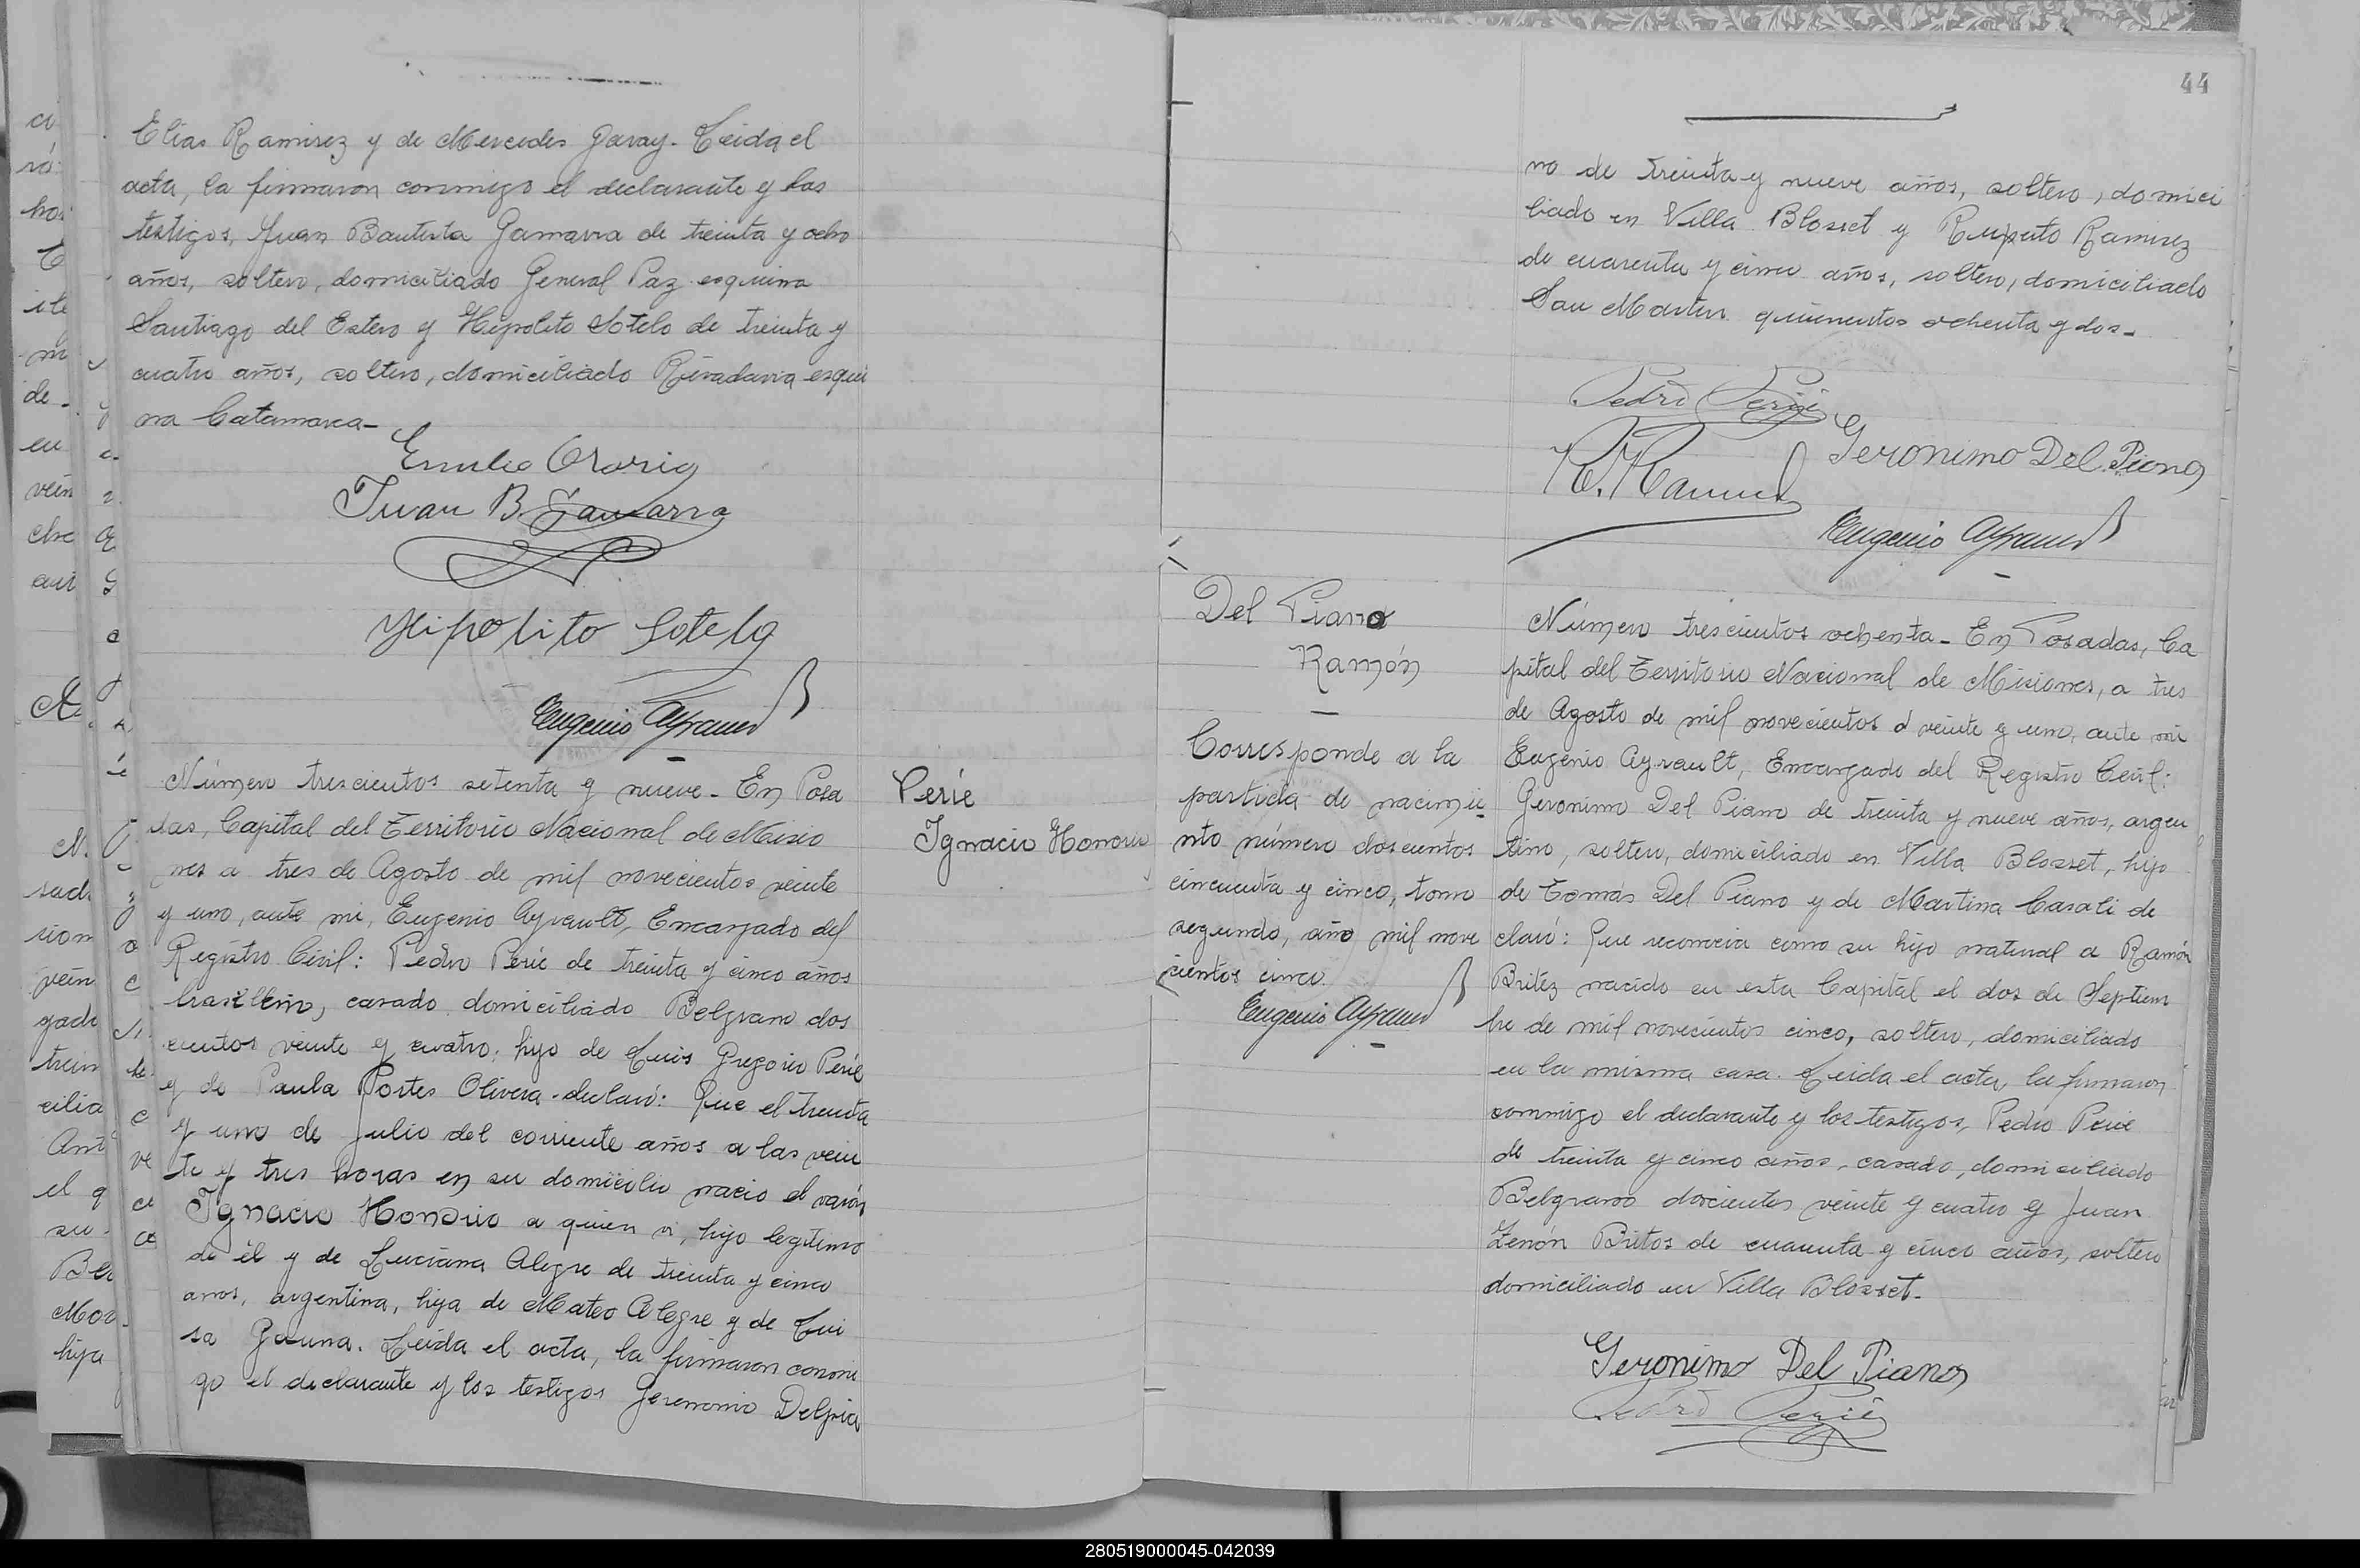 Elias Ramirez y de Mercedes Garay. Leida el
acta, la firmaron conmigo el declarante y los
testigos, Juan Bautista Gamarra de treinta y ocho
años, soltero, domiciliado General Paz esquina
Santiago del Estero y Hipolito Sotelo de treinta y
cuatro años, soltero, domiciliado Rivadavia esqui
na Catamarca-
Emilio
Juan B. Gamarra
Hipolito Sotelo
Eugenio Ayrault
Número trescientos setenta y nueve. En Posa
das, Capital del Territorio Nacional de Misio
nes a tres de Agosto de mil novecientos veinte
y uno, ante mi, Eugenio Ayrault, Encargado del
Registro Civil: Pedro Perié de treinta y cinco años
brasilero, casado domiciliado Belgrano dos
cientos veinte y cuatro, hijo de Luis Gregorio Perié
y de Paula Portes Olivera - declaró: Que el treinta
y uno de Julio del corriente años a las vein
te y tres horas en su domicilio nacio el varón
Ignacio Honorio a quien vi, hijo legitimo
de él y de Luciana Alegre de treinta y cinco
anos, argentina, hija de Mateo Alegre y de Lui
sa Gauna. Leida el acta, la firmaron conmi
go el declarante y los testigos Jeronimo Delpia
Perié
Ignacio Honorio
44
no de treinta y nueve años, soltero, domici
liado en Villa Blosset y Ruperto Ramirez
de cuarenta y cinco años, soltero, domiciliado
San Martin quinientos ochenta y dos-
Pedro Perié
Geronimo Del Piano
R. Ramirez
Eugenio Ayrault
Del Piano
Ramón
Corresponde a la
partida de nacimie
nto número doscientos
cincuenta y cinco, tomo
segundo, año mil nove
cientos cinco.
Eugenio Ayrault
Número trescientos ochenta - En Posadas, Ca
pital del Territorio Nacional de Misiones, a tres
de Agosto de mil novecientos veinte y uno, ante mi
Eugenio Ayrault, Encargado del Registro Civil:
Geronimo Del Piano de treinta y nueve años, argen
tino, soltero, domiciliado en Villa Blosset, hijo
de Tomás Del Piano y de Martina Casali de
claró: Que reconocia como su hijo natural a Ramón
Britez nacido en esta Capital el dos de Septiem
bre de mil novecientos cinco, soltero, domiciliado
en la misma casa. Leida el acta, la firmaron
conmigo el declarante y los testigos, Pedro Perié
de treinta y cinco años, casado, domiciliado
Belgrano doscientos veinte y cuatro y Juan
Zenón Britos de cuarenta y cinco años, soltero
domiciliado en Villa Blosset.
Geronimo Del Piano
Pedro Perié
280519000045-042039